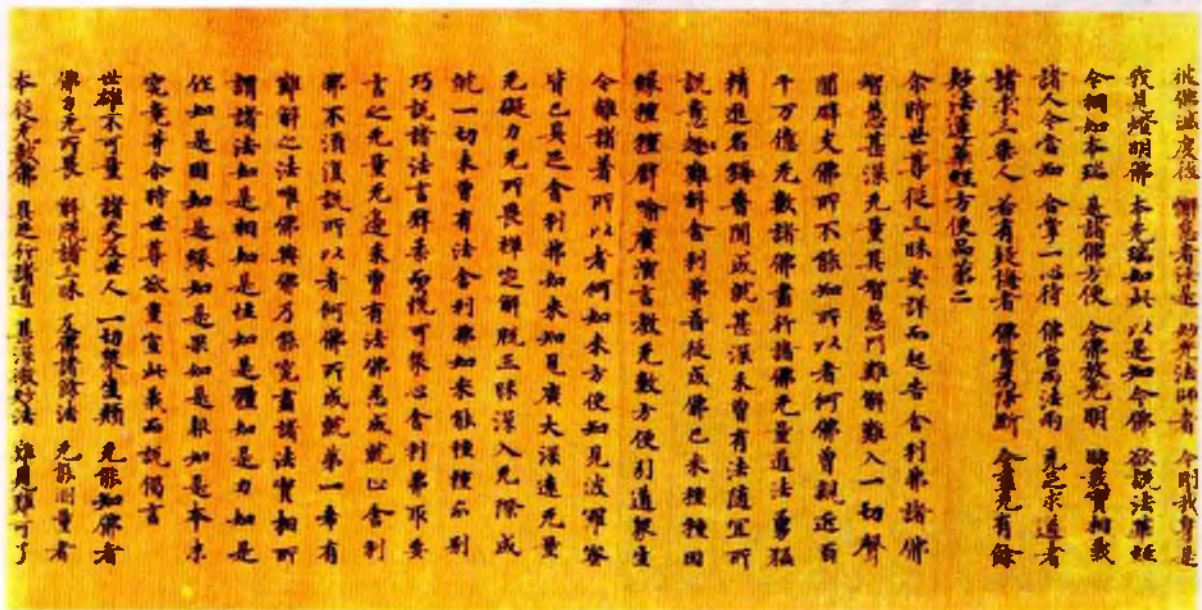 彼佛滅度後 懈怠者汝是 妙光法師者 今則我身是
我見燈明佛 本光瑞如此 以是知今佛 欲說法華經
今相如本瑞 是諸佛方便 今佛放光明 助發實相義
諸人今當知 合掌一心待 佛當雨法雨 充足求道者
諸求三乘人 若有疑悔者 佛當為除斷 令盡无有餘
妙法蓮華經方便品第二
尒時世尊從三昧安詳而起告舍利弗諸佛
智慧甚深无量其智慧門難解難入一切聲
聞辟支佛所不能知所以者何佛曾親近百
千万億无數諸佛盡行諸佛无量道法勇猛
精進名稱普聞成就甚深未曾有法隨宜所
說意趣難解舍利弗吾從成佛已來種種因
緣種種譬喻廣演言教无數方便引道眾生
令離諸著所以者何如來方便知見波羅蜜
皆已具足舍利弗如來知見廣大深遠无量
无礙力无所畏禪定解脫三昧深入无際成
就一切未曾有法舍利弗如來能種種分別
巧說諸法言辭柔耎悅可眾心舍利弗取要
言之无量无邊未曾有法佛悉成就止舍利
弗不須復說所以者何佛所成就第一希有
難解之法唯佛與佛乃能究盡諸法實相所
謂諸法如是相如是性如是體如是力如是
作如是因如是緣如是果如是報如是本末
究竟等尒時世尊欲重宣此義而說偈言
世雄不可量 諸天及世人 一切眾生類 无能知佛者
佛力无所畏 解脫諸三昧 及佛諸餘法 无能測量者
本從无數佛 具足行諸道 甚深微妙法 難見難可了